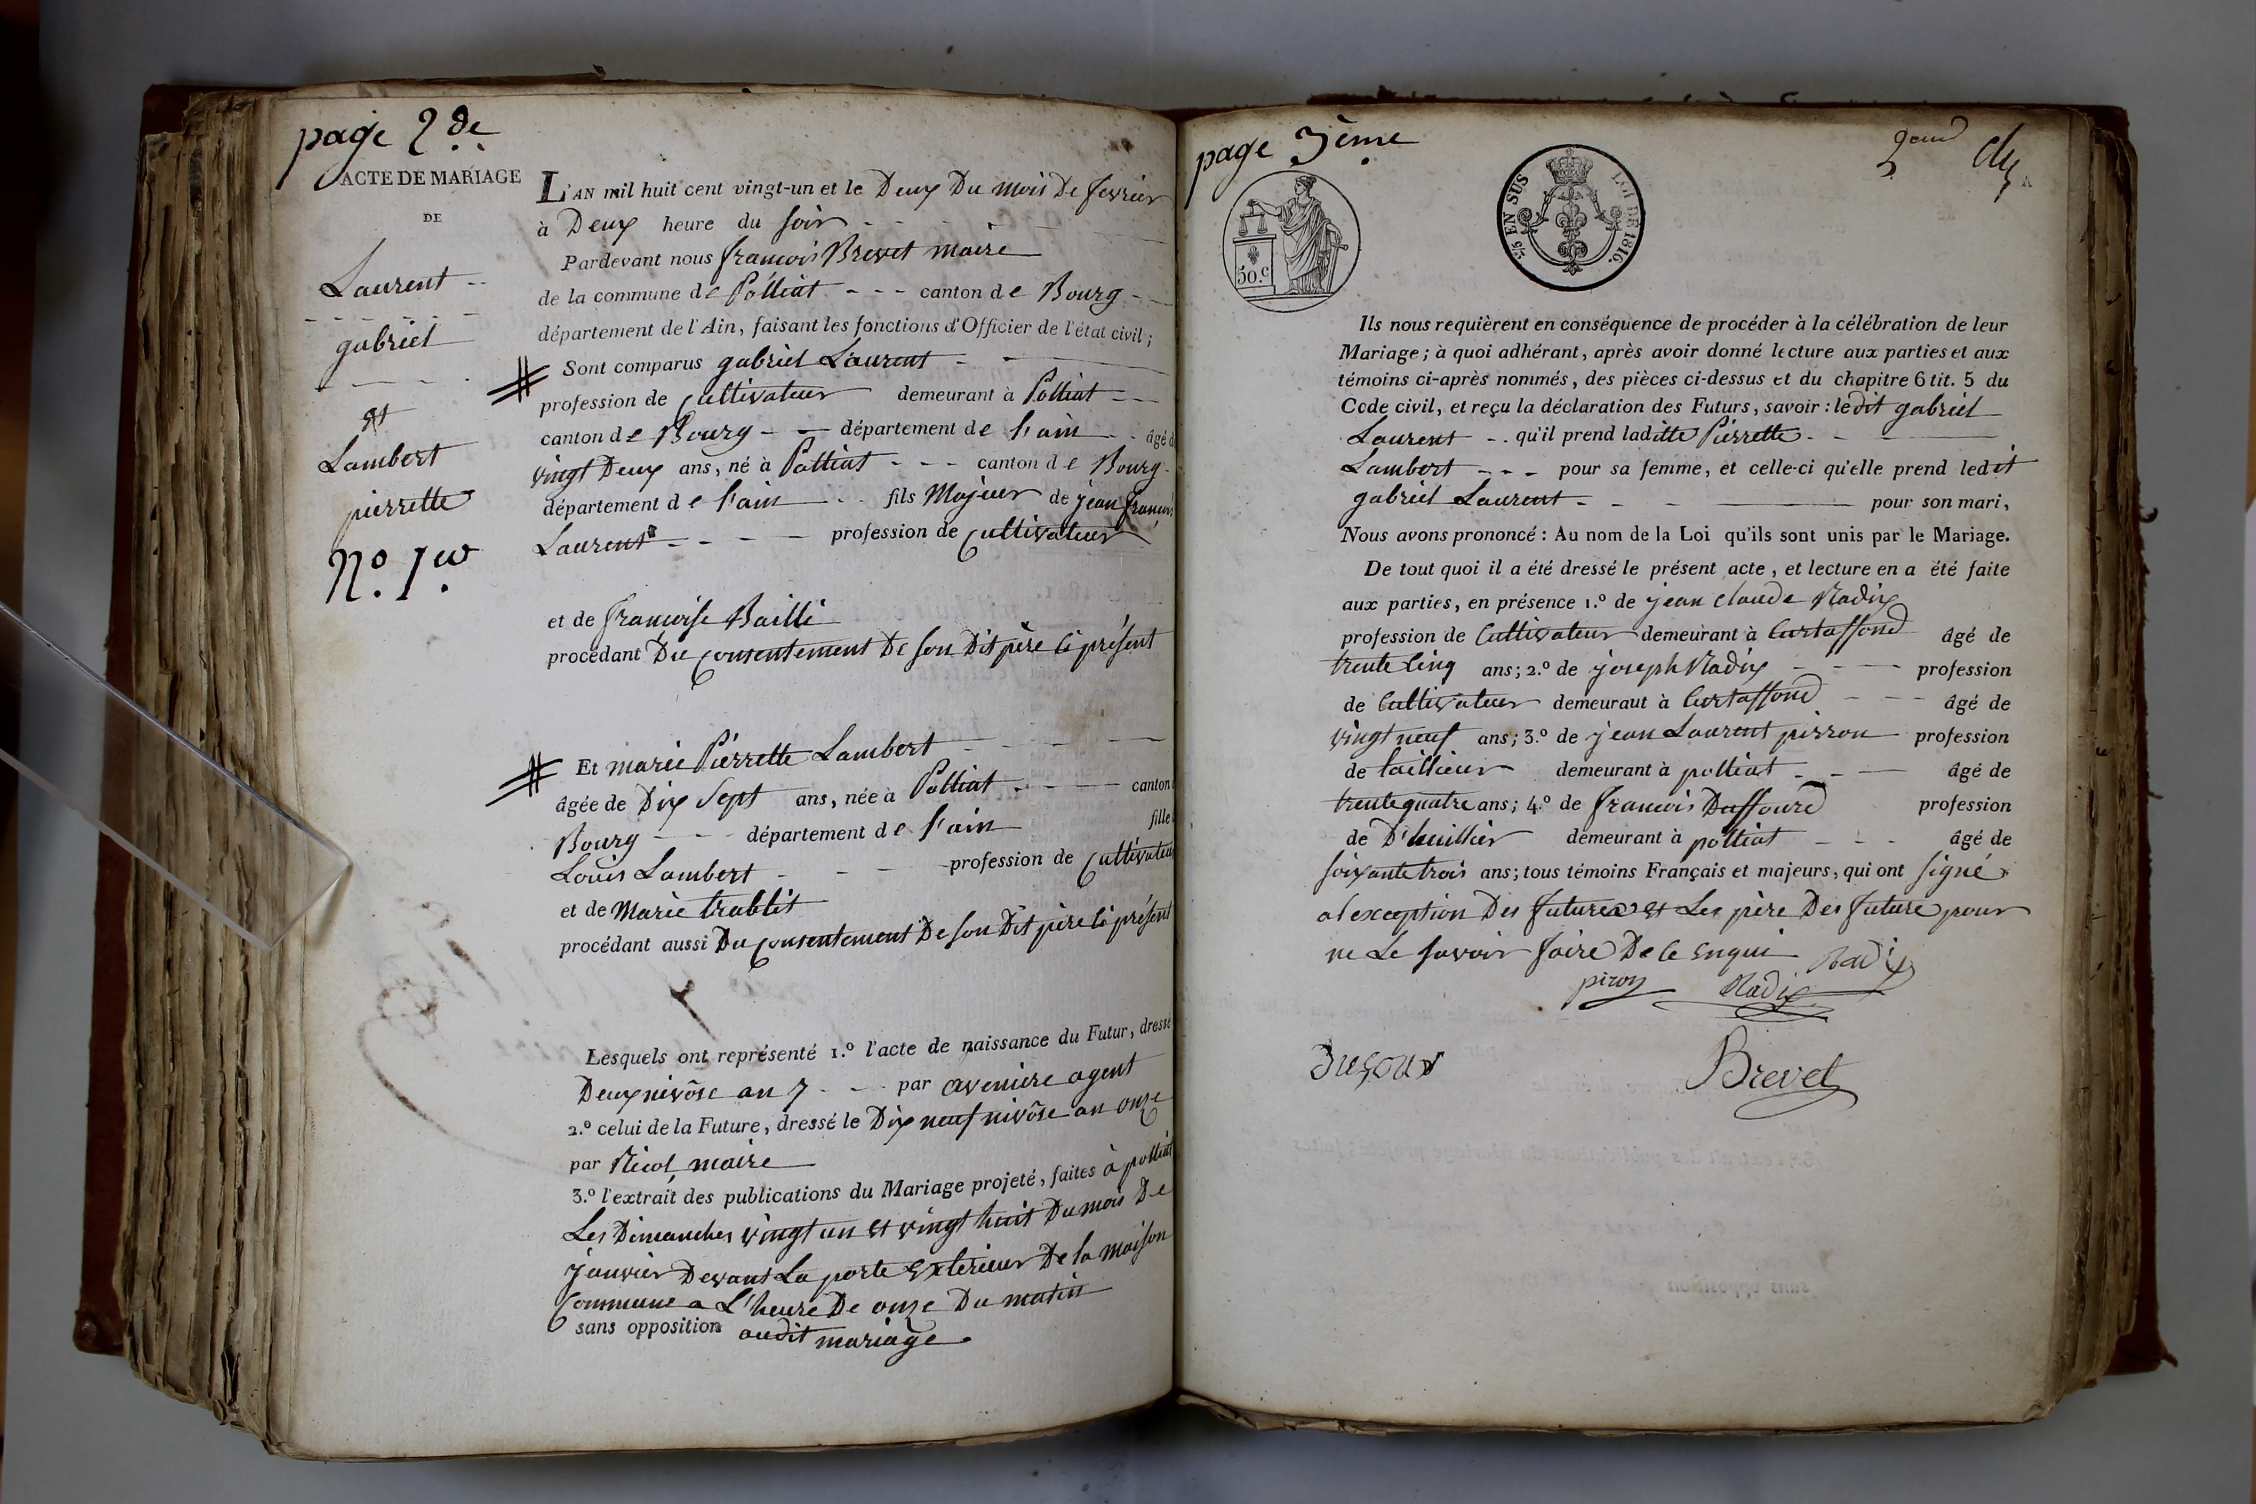 page 2.de
ACTE DE MARIAGE
DE
Laurent
gabriel
et
Lambert
pierrette
No. 1er
L'AN mil huit cent vingt-un et le Deux Du mois De fevrier
à Deux heure du soir
Pardevant nous françois Brevet maire
de la commune de Polliat canton de Bourg
département de l'Ain, faisant les fonctions d'Officier de l'état civil;
Sont comparus gabriel Laurent
profession de Cultivateur demeurant à Polliat
canton de Bourg département de l'ain âgé d
vingt Deux ans, né à Polliat canton de Bourg
département de l'ain fils Majeur de jean françois
Laurent profession de Cultivateur
et de françoise Bailli
procédant Du consentement De son Dit père ci présent
Et marie Pierrette Lambert
âgée de Dix sept ans, née à Polliat canton
Bourg département de l'ain fille
Louis Lambert profession de Cultivateur
et de Marie trablit
procédant aussi Du consentement De son Dit père ci présent
Lesquels ont représenté 1.º l'acte de naissance du Futur, dressé
Deux nivôse an 7 par aveniere agent
2.º celui de la Future, dressé le Dix neuf nivôse an onze
par Nicol maire
3.º l'extrait des publications du Mariage projeté, faites à polliat
Les Dimanches vingt un et vingt huit Du mois De
janvier Devant La porte exterieur De la maison
Commune a L'heure De onze Du matin
sans opposition audit mariage
page 3ème
2eme
50.c
3/5 EN SUS LOI DE 1816.
Ils nous requièrent en conséquence de procéder à la célébration de leur
Mariage; à quoi adhérant, après avoir donné lecture aux parties et aux
témoins ci-après nommés, des pièces ci-dessus et du chapitre 6 tit. 5 du
Code civil, et reçu la déclaration des Futurs, savoir: ledit gabriel
Laurent qu'il prend laditte Pierrette
Lambert pour sa femme, et celle-ci qu'elle prend ledit
gabriel Laurent pour son mari,
Nous avons prononcé: Au nom de la Loi qu'ils sont unis par le Mariage.
De tout quoi il a été dressé le présent acte, et lecture en a été faite
aux parties, en présence 1.º de jean claude Nadix
profession de Cultivateur demeurant à Curtaffond âgé de
trente Cinq ans; 2.º de joseph Nadix profession
de Cultivateur demeuraut à Curtaffond âgé de
vingt neuf ans; 3.º de jean Laurent pirron profession
de taillieur demeurant à polliat âgé de
trente quatre ans; 4.º de francois Duffourd profession
de D'huillier demeurant à polliat âgé de
soixante trois ans; tous témoins Français et majeurs, qui ont signé
a l'exception Des futures et Les père Des future pour
ne Le savoir faire De Ce enqui
piron Nadix Nadix
Dufour
Brevet